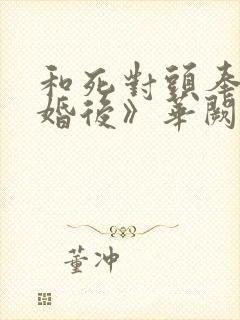 和死對頭奉
婚後》華闕
董冲